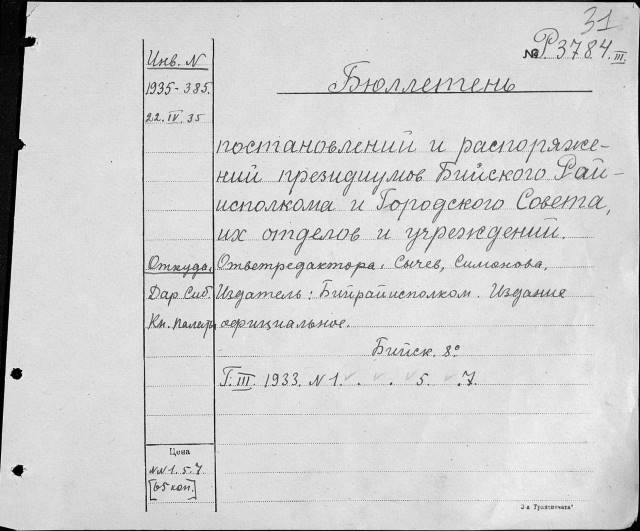 31
№ Р3784.III.
Инв. N
1935-385.
22.IV.35
Бюллетень
постановлений и распоряже-
ний президиумов Бийского Рай-
исполкома и Городского Совета,
их отделов и учреждений.
Откуда. Ответредактора: Сычев, Симонова.
Дар Сиб. Издатель: Бийрайисполком. Издание
Кн. палаты официальное.
Бийск. 8°
Г.III. 1933. N 1. . . 5. . 7.
Цена
NN 1. 5. 7
[65 коп.]